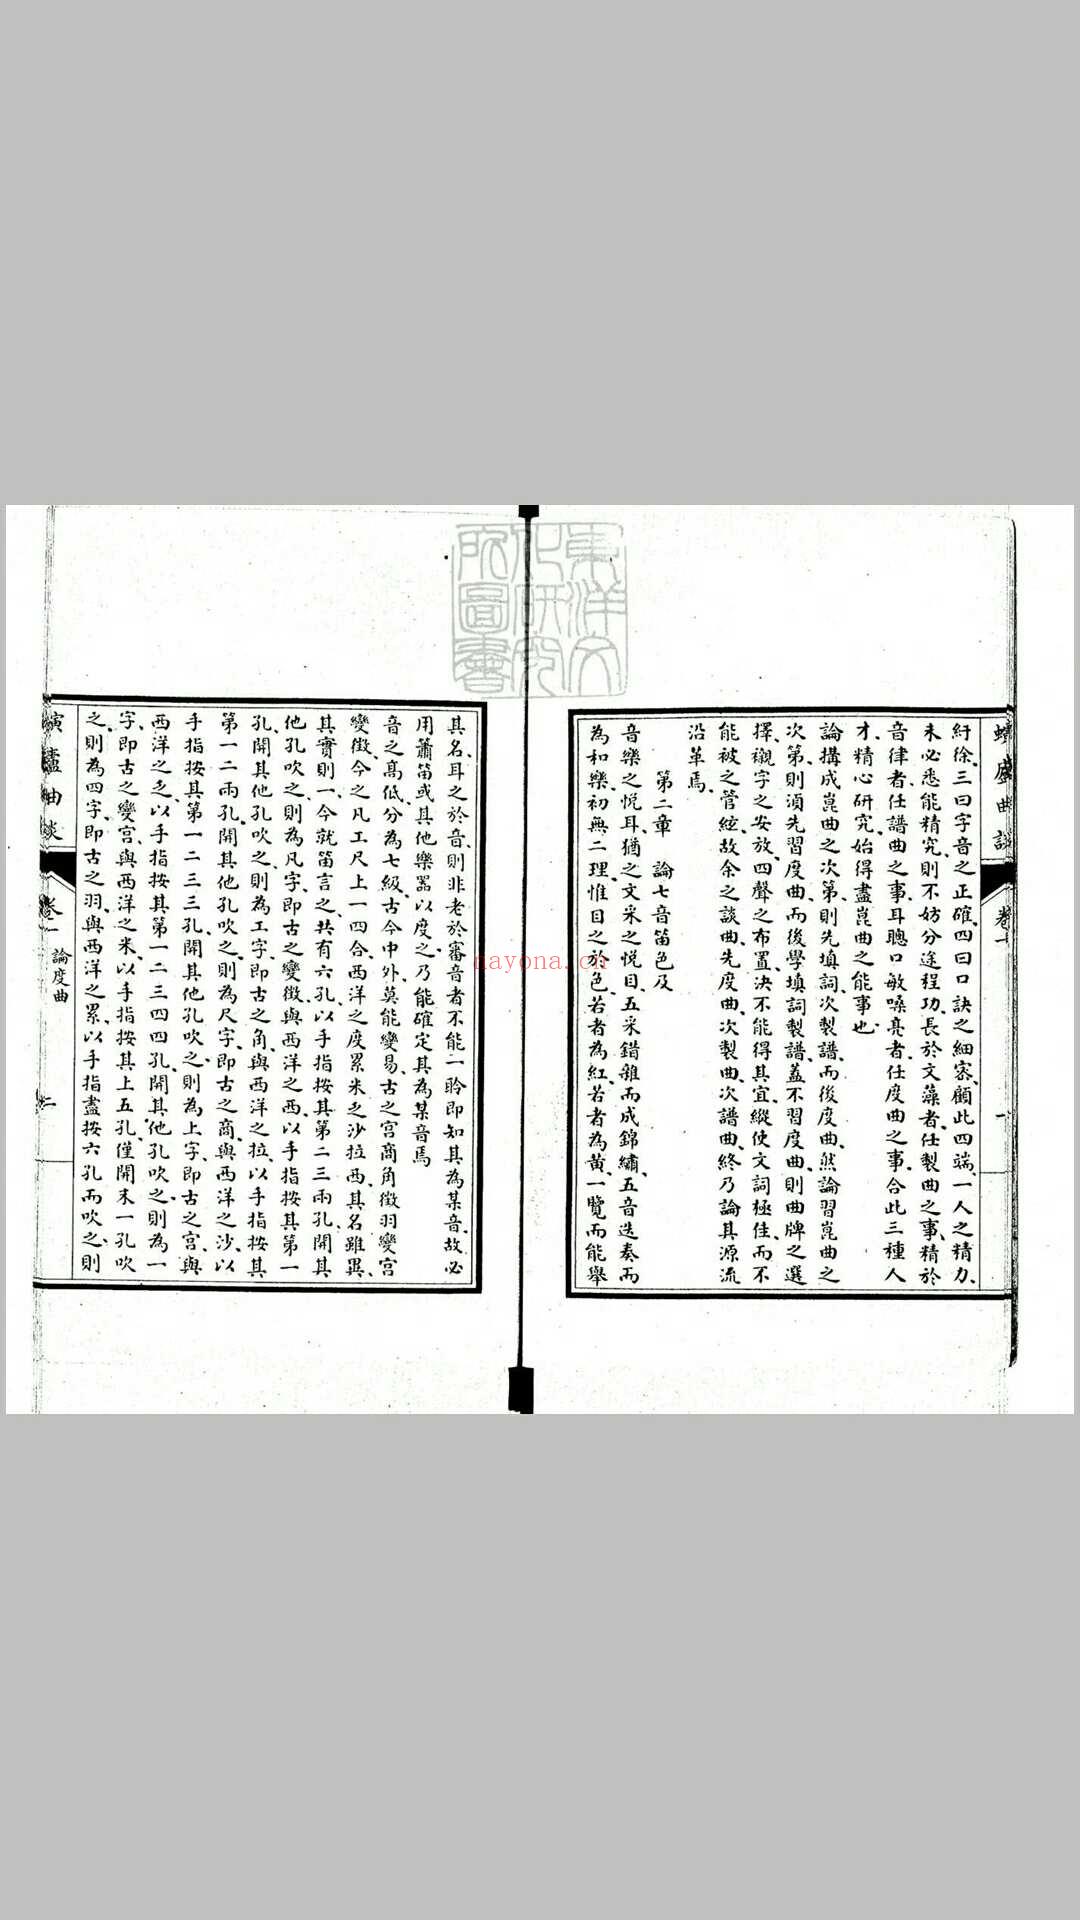 東洋文
化研究
所圖書
螾廬曲談
卷一
一
紆徐三曰字音之正確四曰口訣之細密顧此四端一人之精力
未必悉能精究則不妨分途程功長於文藻者任製曲之事精於
音律者任譜曲之事耳聰口敏嗓亮者任度曲之事合此三種人
才精心研究始得盡崑曲之能事也
論搆成崑曲之次第則先填詞次製譜而後度曲然論習崑曲之
次第則須先習度曲而後學填詞製譜蓋不習度曲則曲牌之選
擇襯字之安放四聲之布置決不能得其宜縱使文詞極佳而不
能被之管絃故余之談曲先度曲次製曲次譜曲終乃論其源流
沿革焉
第二章　論七音笛色及
音樂之悦耳猶之文采之悦目五采錯雜而成錦繡五音迭奏而
為和樂初無二理惟目之於色若者為紅若者為黄一覽而能舉
nayona.cn
其名耳之於音則非老於審音者不能一聆即知其為某音故必
用簫笛或其他樂器以度之乃能確定其為某音焉
音之高低分為七級古今中外莫能變易古之宮商角徵羽變宮
變徵今之凡工尺上一四合西洋之度累米乏沙拉西其名雖異
其實則一今就笛言之共有六孔以手指按其第二三兩孔開其
他孔吹之則為凡字即古之變徵與西洋之西以手指按其第一
孔開其他孔吹之則為工字即古之角與西洋之拉以手指按其
第一二兩孔開其他孔吹之則為尺字即古之商與西洋之沙以
手指按其第一二三三孔開其他孔吹之則為上字即古之宮與
西洋之乏以手指按其第一二三四四孔開其他孔吹之則為一
字即古之變宮與西洋之米以手指按其上五孔僅開末一孔吹
之則為四字即古之羽與西洋之累以手指盡按六孔而吹之則
螾廬曲談
卷一
論度曲
二